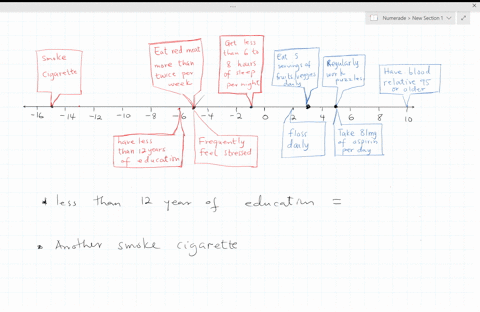 Numerade > New Section 1
Smoke
Cigarette
Eat red meat
more than
twice per
week
Get less
than 6 to
8 hours
of sleep
per night
Eat 5
servings of
fruits/veggies
daily
Regularly
work
puzzles
Have blood
relative 95
or older
-16 -14 -12 -10 -8 -6 -4 -2 0 2 4 6 8 10
have less
than 12 years
of education
Frequently
feel stressed
floss
daily
Take 81mg
of aspirin
per day
less than 12 year of education =
Another smoke cigarette